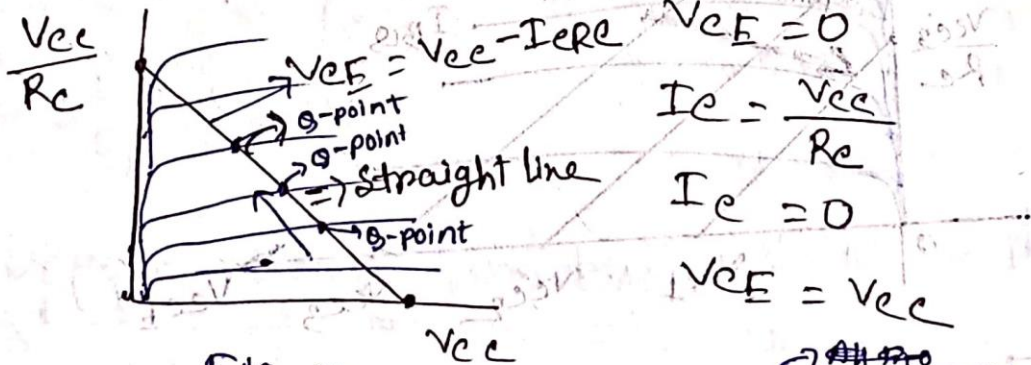 Vcc
Rc
VCE = Vcc - IcRc
Q-point
Q-point
=) Straight line
Q-point
Vcc
VCE = 0
Ic = Vcc
Rc
Ic = 0
VCE = Vcc